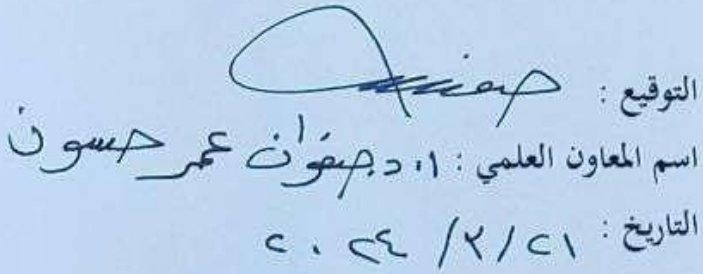 التوقيع :
اسم المعاون العلمي : ا. د صفوان عمر حسون
التاريخ : ٢١ / ٣ / ٢٠٢٤